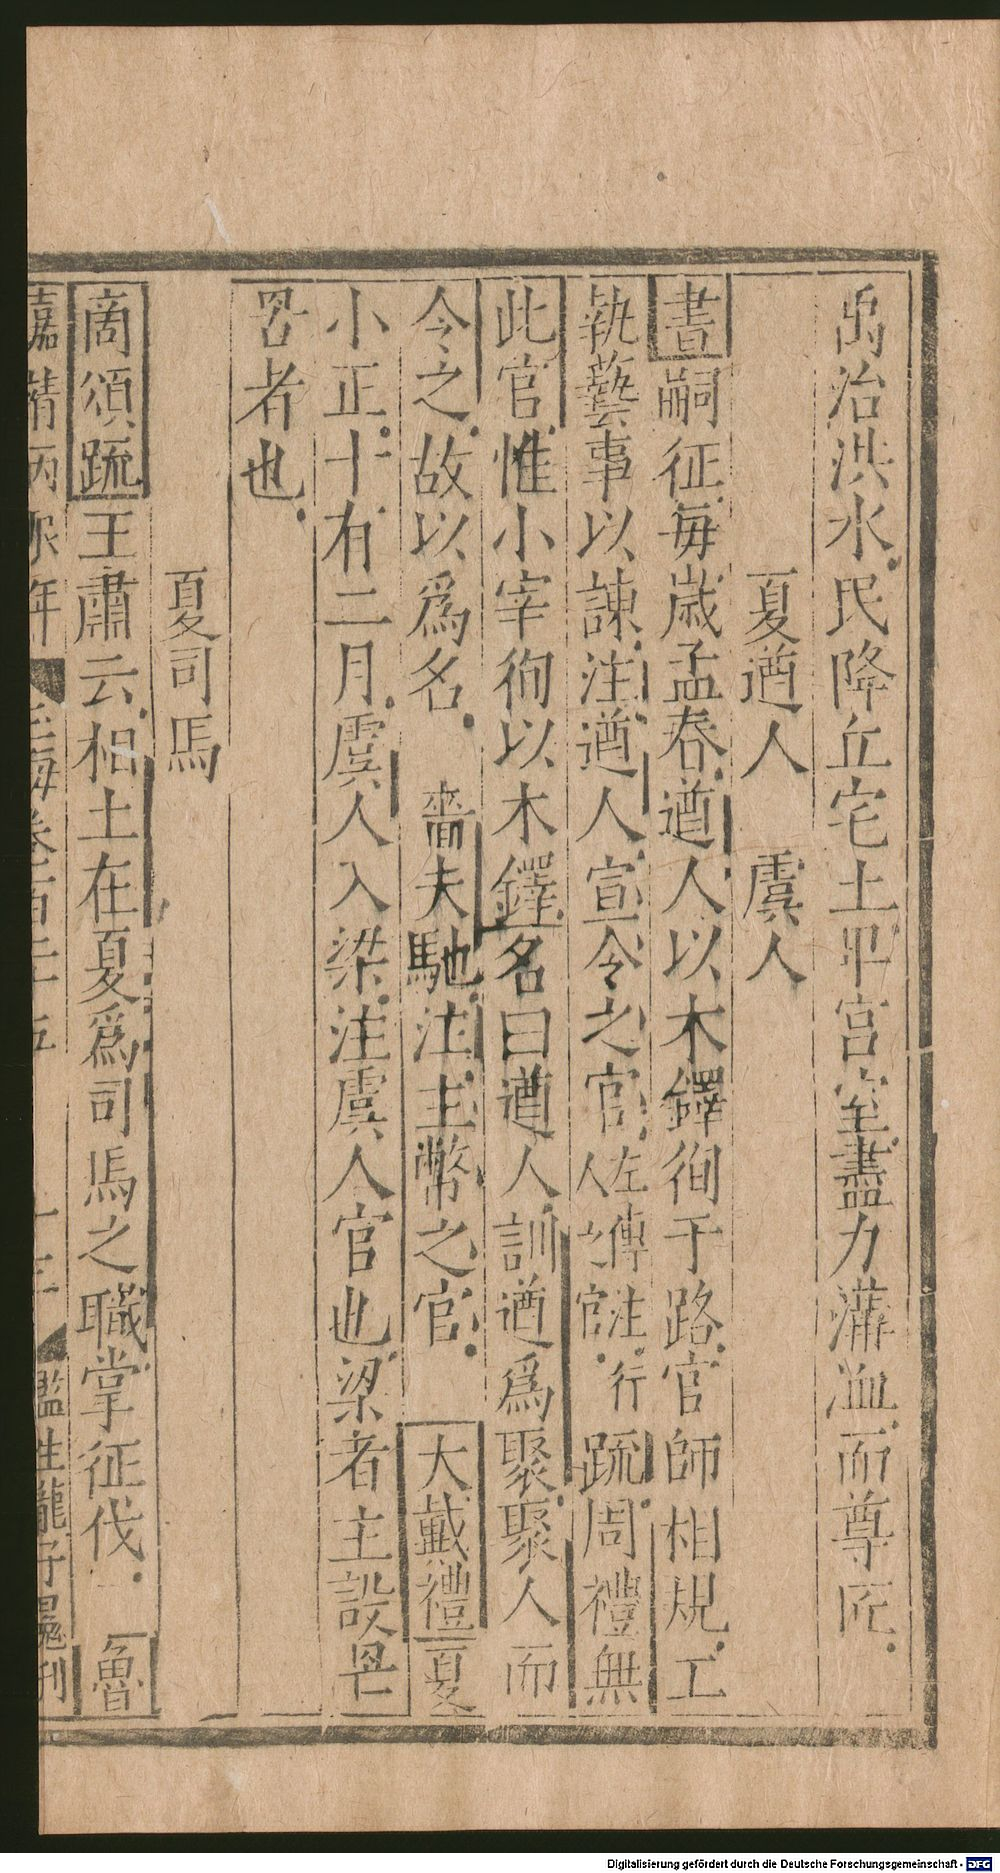 禹治洪水民降丘宅土卑宮室盡力溝洫而尊匠
夏遒人 虞人
書嗣征每歲孟春遒人以木鐸徇于路官師相規工
執藝事以諫注遒人宣令之官左傳注行人之官疏周禮無
此官惟小宰徇以木鐸名曰遒人訓遒為聚聚人而
令之故以為名 嗇夫馳注主幣之官 大戴禮夏
小正十有二月虞人入梁注虞人官也梁者主設罔
罟者也
夏司馬
商頌疏王肅云相土在夏為司馬之職掌征伐 魯
嘉靖丙辰年 玉海卷百二十五 監生龍子 刊
Digitalisierung gefördert durch die Deutsche Forschungsgemeinschaft - DFG